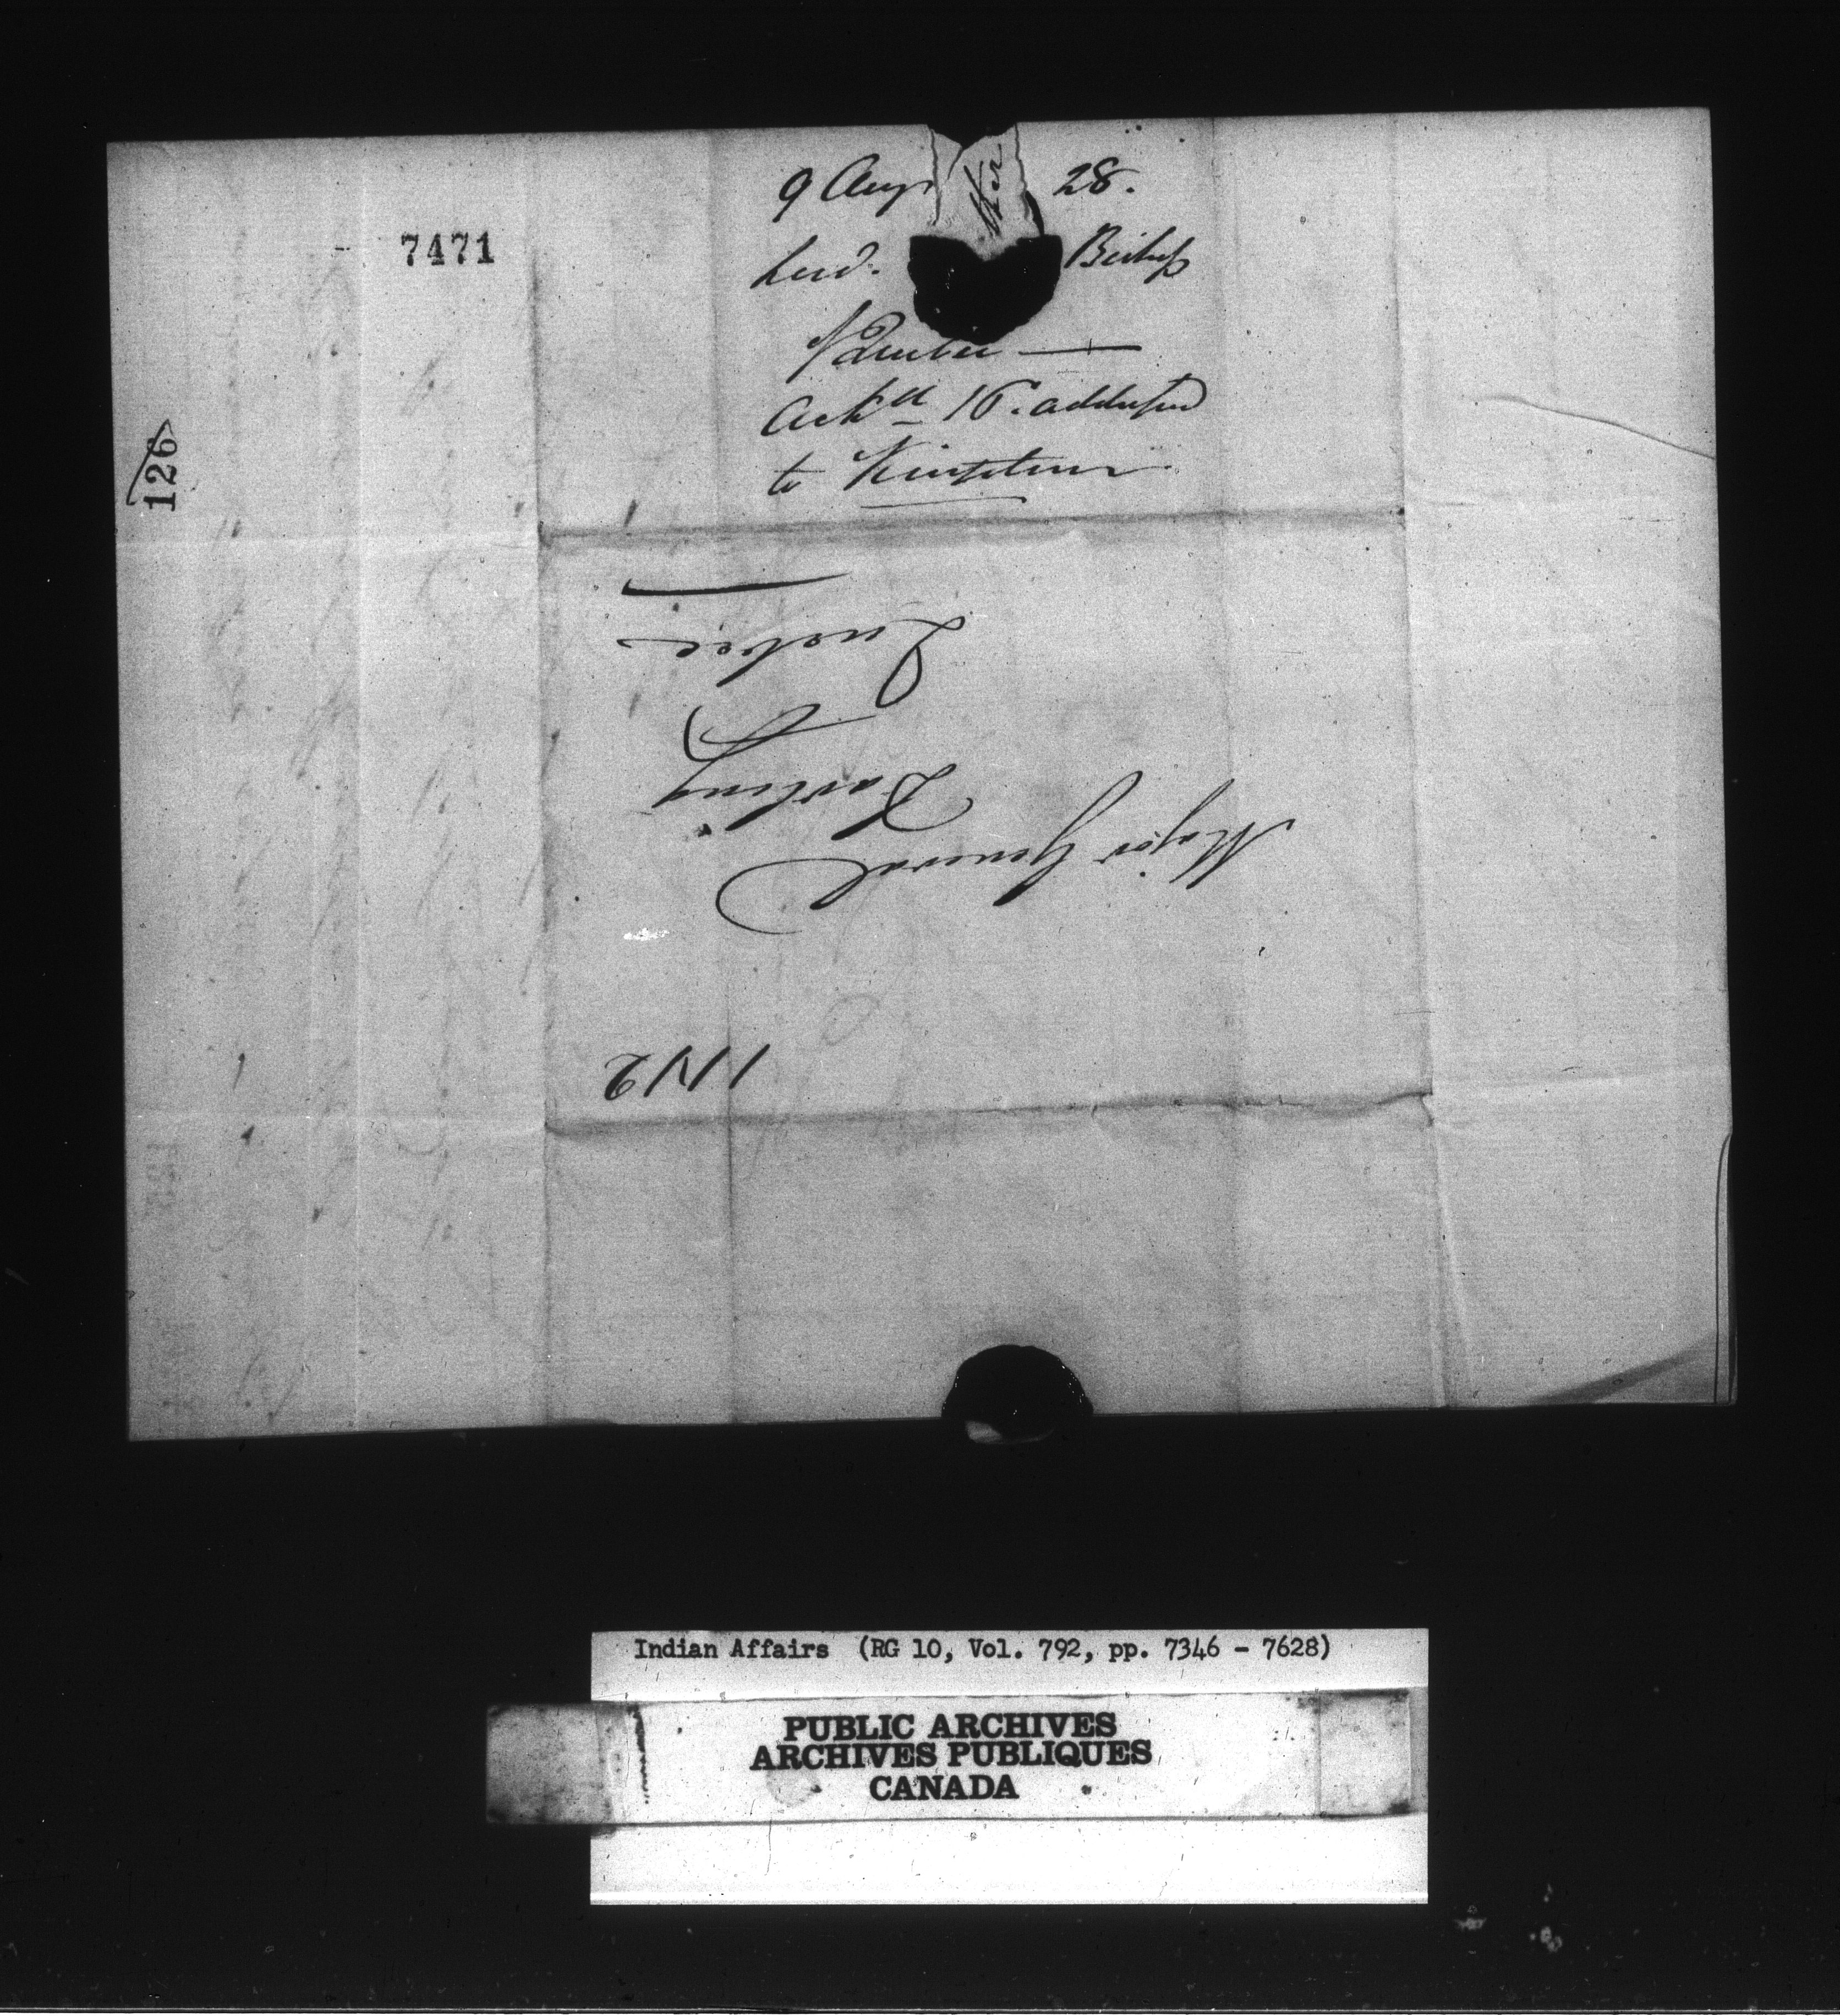 7471
126
9 Aug 28.
Lord. Bishop
Quebec —
Ackd 16. addressed
to Kingston
Major General
Darling
Quebec
Indian Affairs (RG 10, Vol. 792, pp. 7346 - 7628)
PUBLIC ARCHIVES
ARCHIVES PUBLIQUES
CANADA